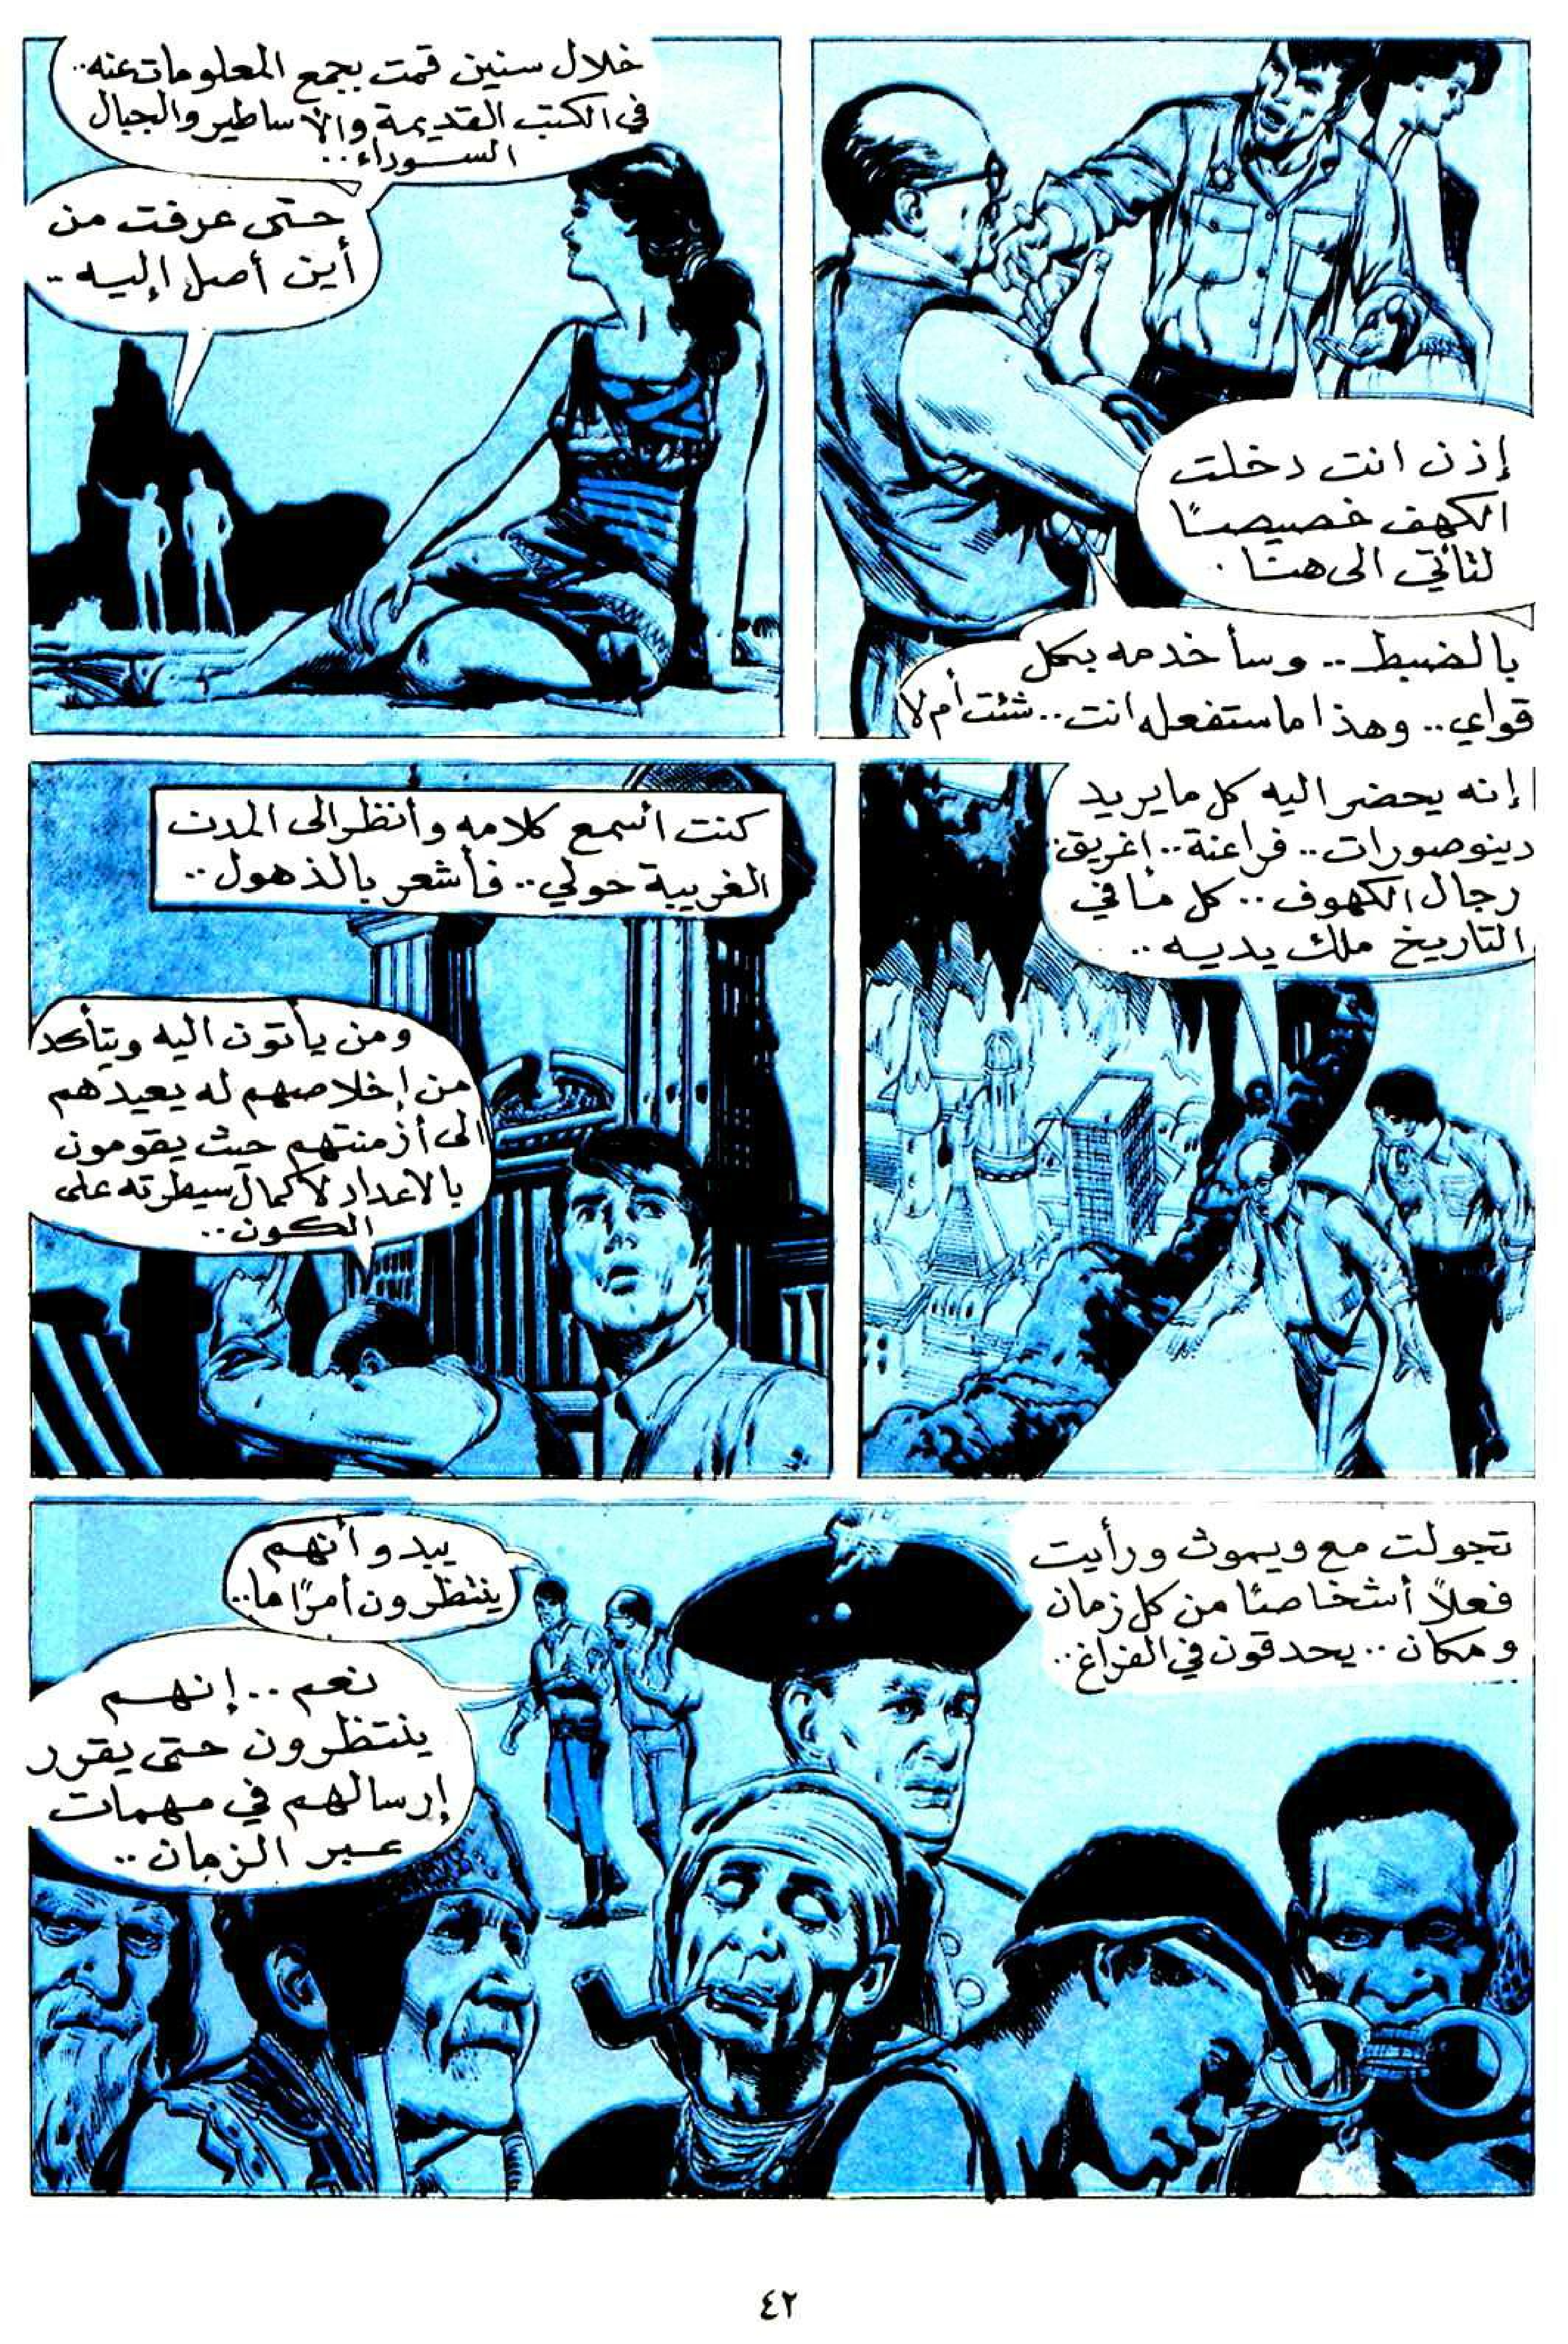 إذن انت دخلت
الكهف خصيصًا
لتأتي الى هنا .
بالضبط .. وسأخدمه بكل
قواي .. وهذا ما ستفعله انت .. شئت أم لا
خلال سنين قمت بجمع المعلومات عنه ..
في الكتب القديمة والأساطير والجبال
السوداء ..
حتى عرفت من
أين أصل إليه ..
إنه يحضر اليه كل ما يريد
دينوصورات .. فراعنة .. اغريق
رجال الكهوف .. كل ما في
التاريخ ملك يديه ..
كنت أسمع كلامه وأنظر الى المدن
الغريبة حولي .. فأشعر بالذهول ..
ومن يأتون اليه ويتأكد
من إخلاصهم له يعيدهم
الى أزمنتهم حيث يقومون
بالاعداد لاكمال سيطرته على
الكون ..
تجولت مع ويموث ورأيت
فعلاً أشخاصًا من كل زمان
ومكان .. يحدقون في الفراغ ..
يبدو أنهم
ينتظرون أمرًا ما ..
نعم .. إنهم
ينتظرون حتى يقرر
إرسالهم في مهمات
عبر الزمان ..
٤٢